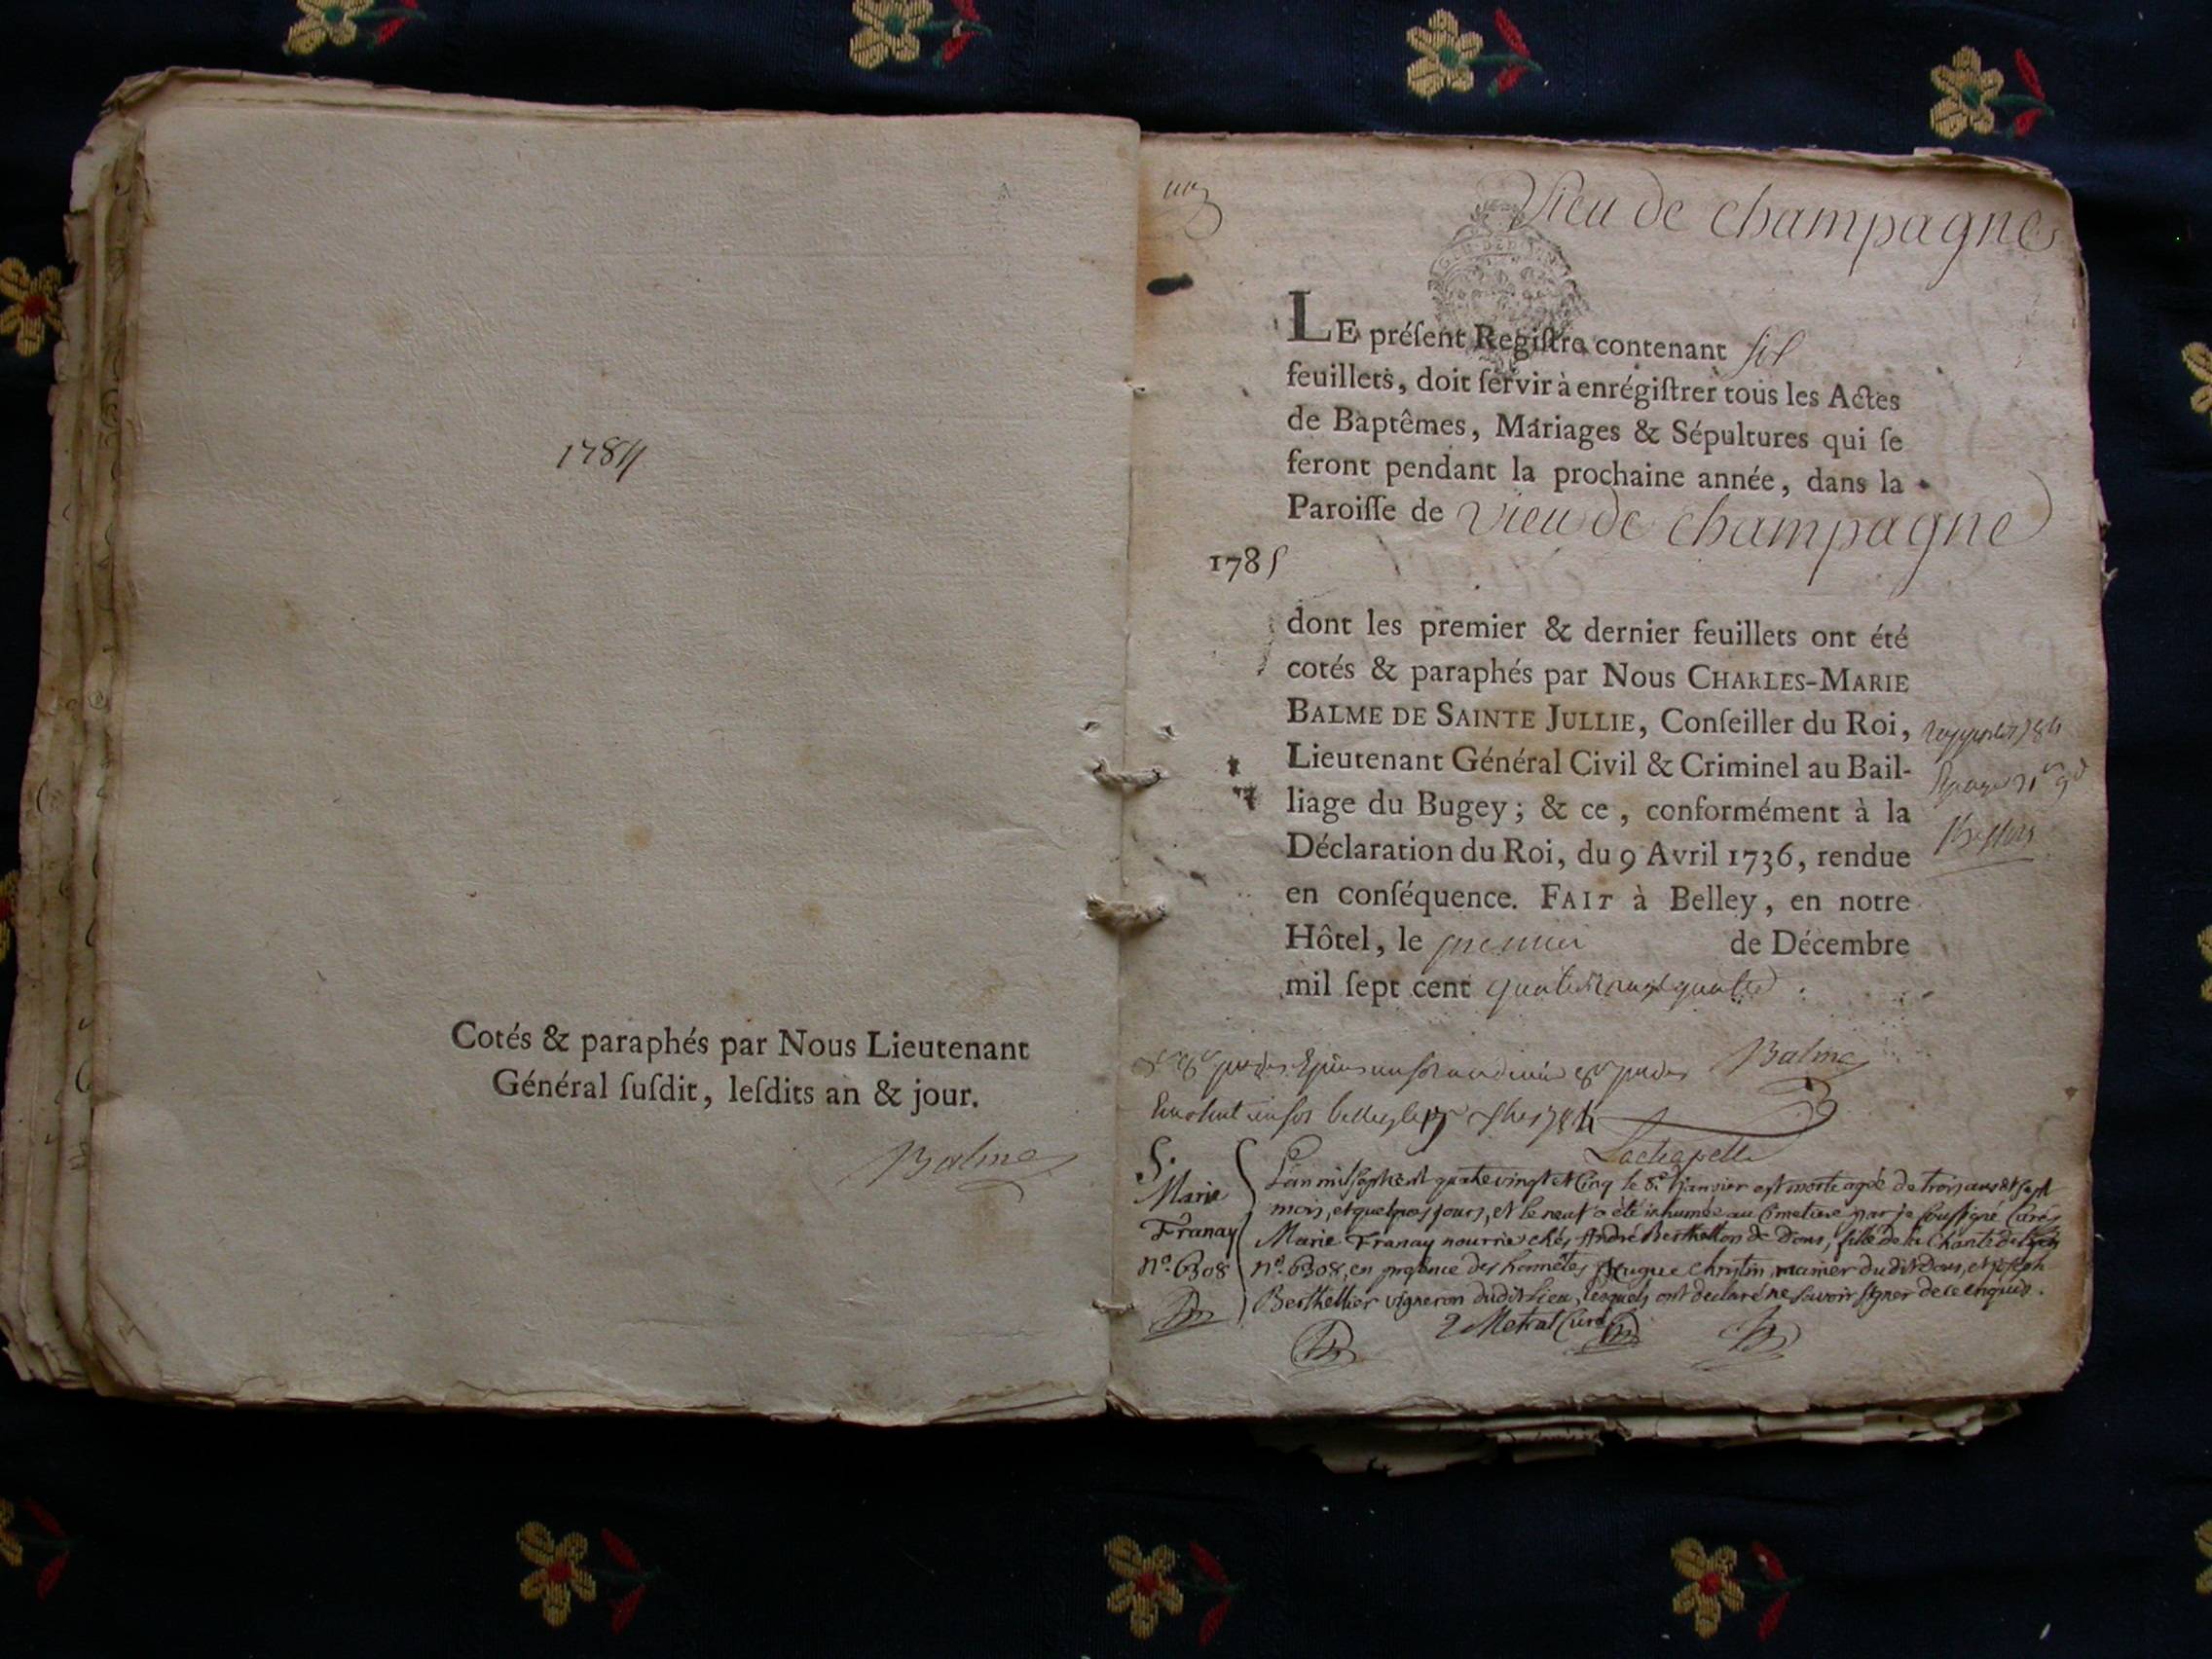 1784
Cotés & paraphés par Nous Lieutenant
Général ſuſdit, leſdits an & jour.
Balme
Vieu de champagne
LE préſent Regiſtre contenant six
feuillets, doit ſervir à enrégiſtrer tous les Actes
de Baptêmes, Mariages & Sépultures qui ſe
feront pendant la prochaine année, dans la
Paroiſſe de Vieu de champagne
1785
dont les premier & dernier feuillets ont été
cotés & paraphés par Nous CHARLES-MARIE
BALME DE SAINTE JULLIE, Conſeiller du Roi,
Lieutenant Général Civil & Criminel au Bail-
liage du Bugey; & ce, conformément à la
Déclaration du Roi, du 9 Avril 1736, rendue
en conſéquence. FAIT à Belley, en notre
Hôtel, le premier de Décembre
mil ſept cent quatre vingt quatre.
Balme
Lachapelle
S.
Marie
Franay
nº. 6308
L'an mil sept cent quatre vingt et cinq le 8e janvier est morte agée de trois ans et sept
mois, et quelques jours, et le neuf a été inhumée au Cimetiere par je soussigné Curé
Marie Franay nourrie chés André Berthellon de Dons, fille de la Charité de
nº. 6308, en presence des honnêtes hugue Christin, manier dudit Dons, et joseph
Berthellier vigneron dudit lieu, lesquels ont declaré ne savoir signer de ce enquis.
Metrat Curé